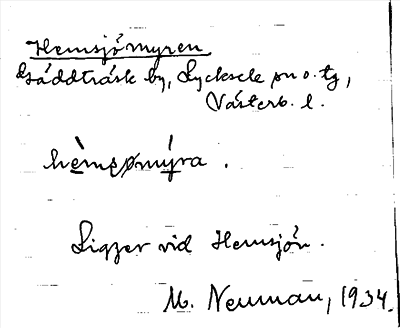 Hemsjömyren
Gäddträsk by, Lycksele sn o. tg,
Västerb. l.
Ligger vid Hemsjön.
M. Neuman, 1934.